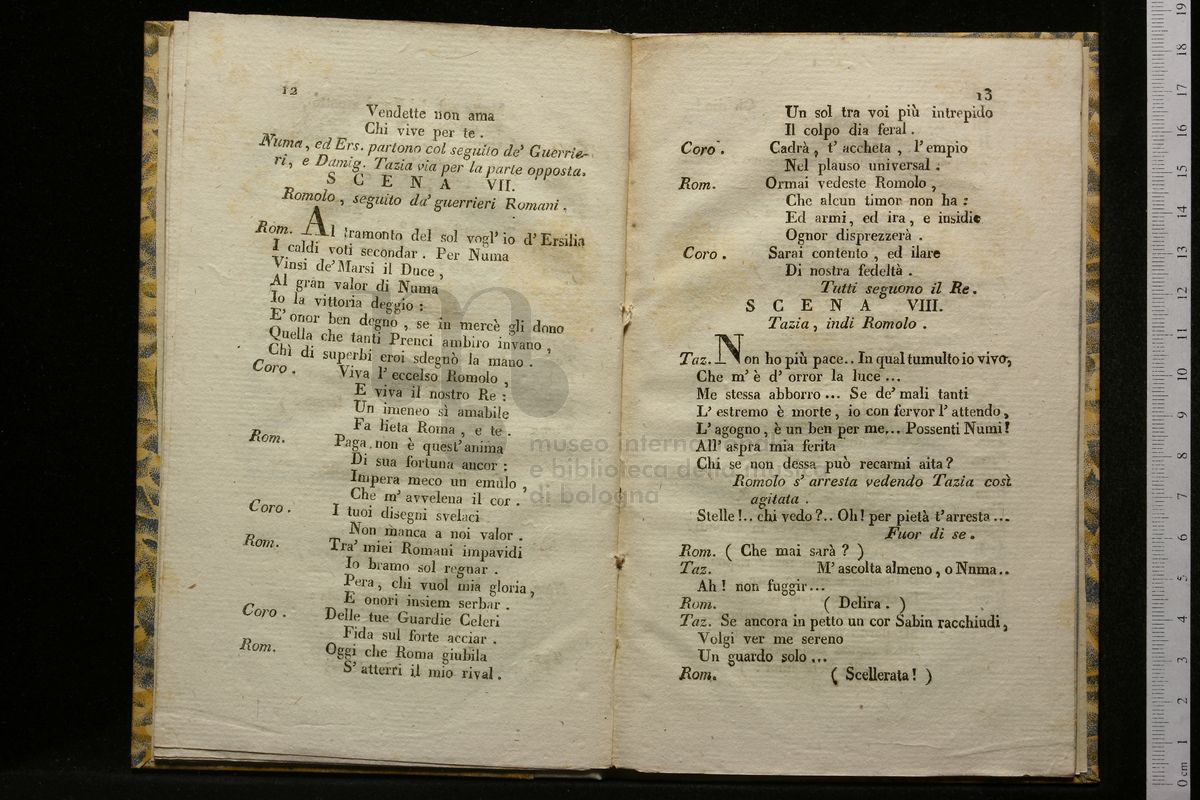 12
Vendette non ama
Chi vive per te .
Numa, ed Ers. partono col seguito de' Guerrie-
ri, e Damig. Tazia via per la parte opposta.
S C E N A VII.
Romolo, seguito da' guerrieri Romani.
Rom. Al tramonto del sol vogl' io d' Ersilia
I caldi voti secondar . Per Numa
Vinsi de' Marsi il Duce ,
Al gran valor di Numa
Io la vittoria deggio :
E' onor ben degno , se in mercè gli dono
Quella che tanti Prenci ambiro invano ,
Chì di superbi eroi sdegnò la mano .
Coro . Viva l' eccelso Romolo ,
E viva il nostro Re :
Un imeneo sì amabile
Fa lieta Roma , e te .
Rom. Paga non è quest' anima
Di sua fortuna ancor :
Impera meco un emulo ,
Che m' avvelena il cor .
Coro . I tuoi disegni svelaci
Non manca a noi valor .
Rom. Tra' miei Romani impavidi
Io bramo sol regnar .
Pera , chi vuol mia gloria ,
E onori insiem serbar .
Coro . Delle tue Guardie Celeri
Fida sul forte acciar .
Rom. Oggi che Roma giubila
S' atterri il mio rival .
13
Un sol tra voi più intrepido
Il colpo dia feral .
Coro . Cadrà , t' accheta , l' empio
Nel plauso universal .
Rom. Ormai vedeste Romolo ,
Che alcun timor non ha :
Ed armi , ed ira , e insidie
Ognor disprezzerà .
Coro . Sarai contento , ed ilare
Di nostra fedeltà .
Tutti seguono il Re .
S C E N A VIII.
Tazia , indi Romolo .
Taz. Non ho più pace.. In qual tumulto io vivo,
Che m' è d' orror la luce ...
Me stessa abborro ... Se de' mali tanti
L' estremo è morte , io con fervor l' attendo ,
L' agogno , è un ben per me... Possenti Numi!
All' aspra mia ferita
Chi se non dessa può recarmi aita ?
Romolo s' arresta vedendo Tazia così
agitata .
Stelle !.. chi vedo ?.. Oh! per pietà t' arresta ...
Fuor di se .
Rom. ( Che mai sarà ? )
Taz. M' ascolta almeno , o Numa..
Ah ! non fuggir ...
Rom. ( Delira . )
Taz. Se ancora in petto un cor Sabin racchiudi ,
Volgi ver me sereno
Un guardo solo ...
Rom. ( Scellerata ! )
museo internazionale
e biblioteca della musica
di bologna
0 cm 1 2 3 4 5 6 7 8 9 10 11 12 13 14 15 16 17 18 19